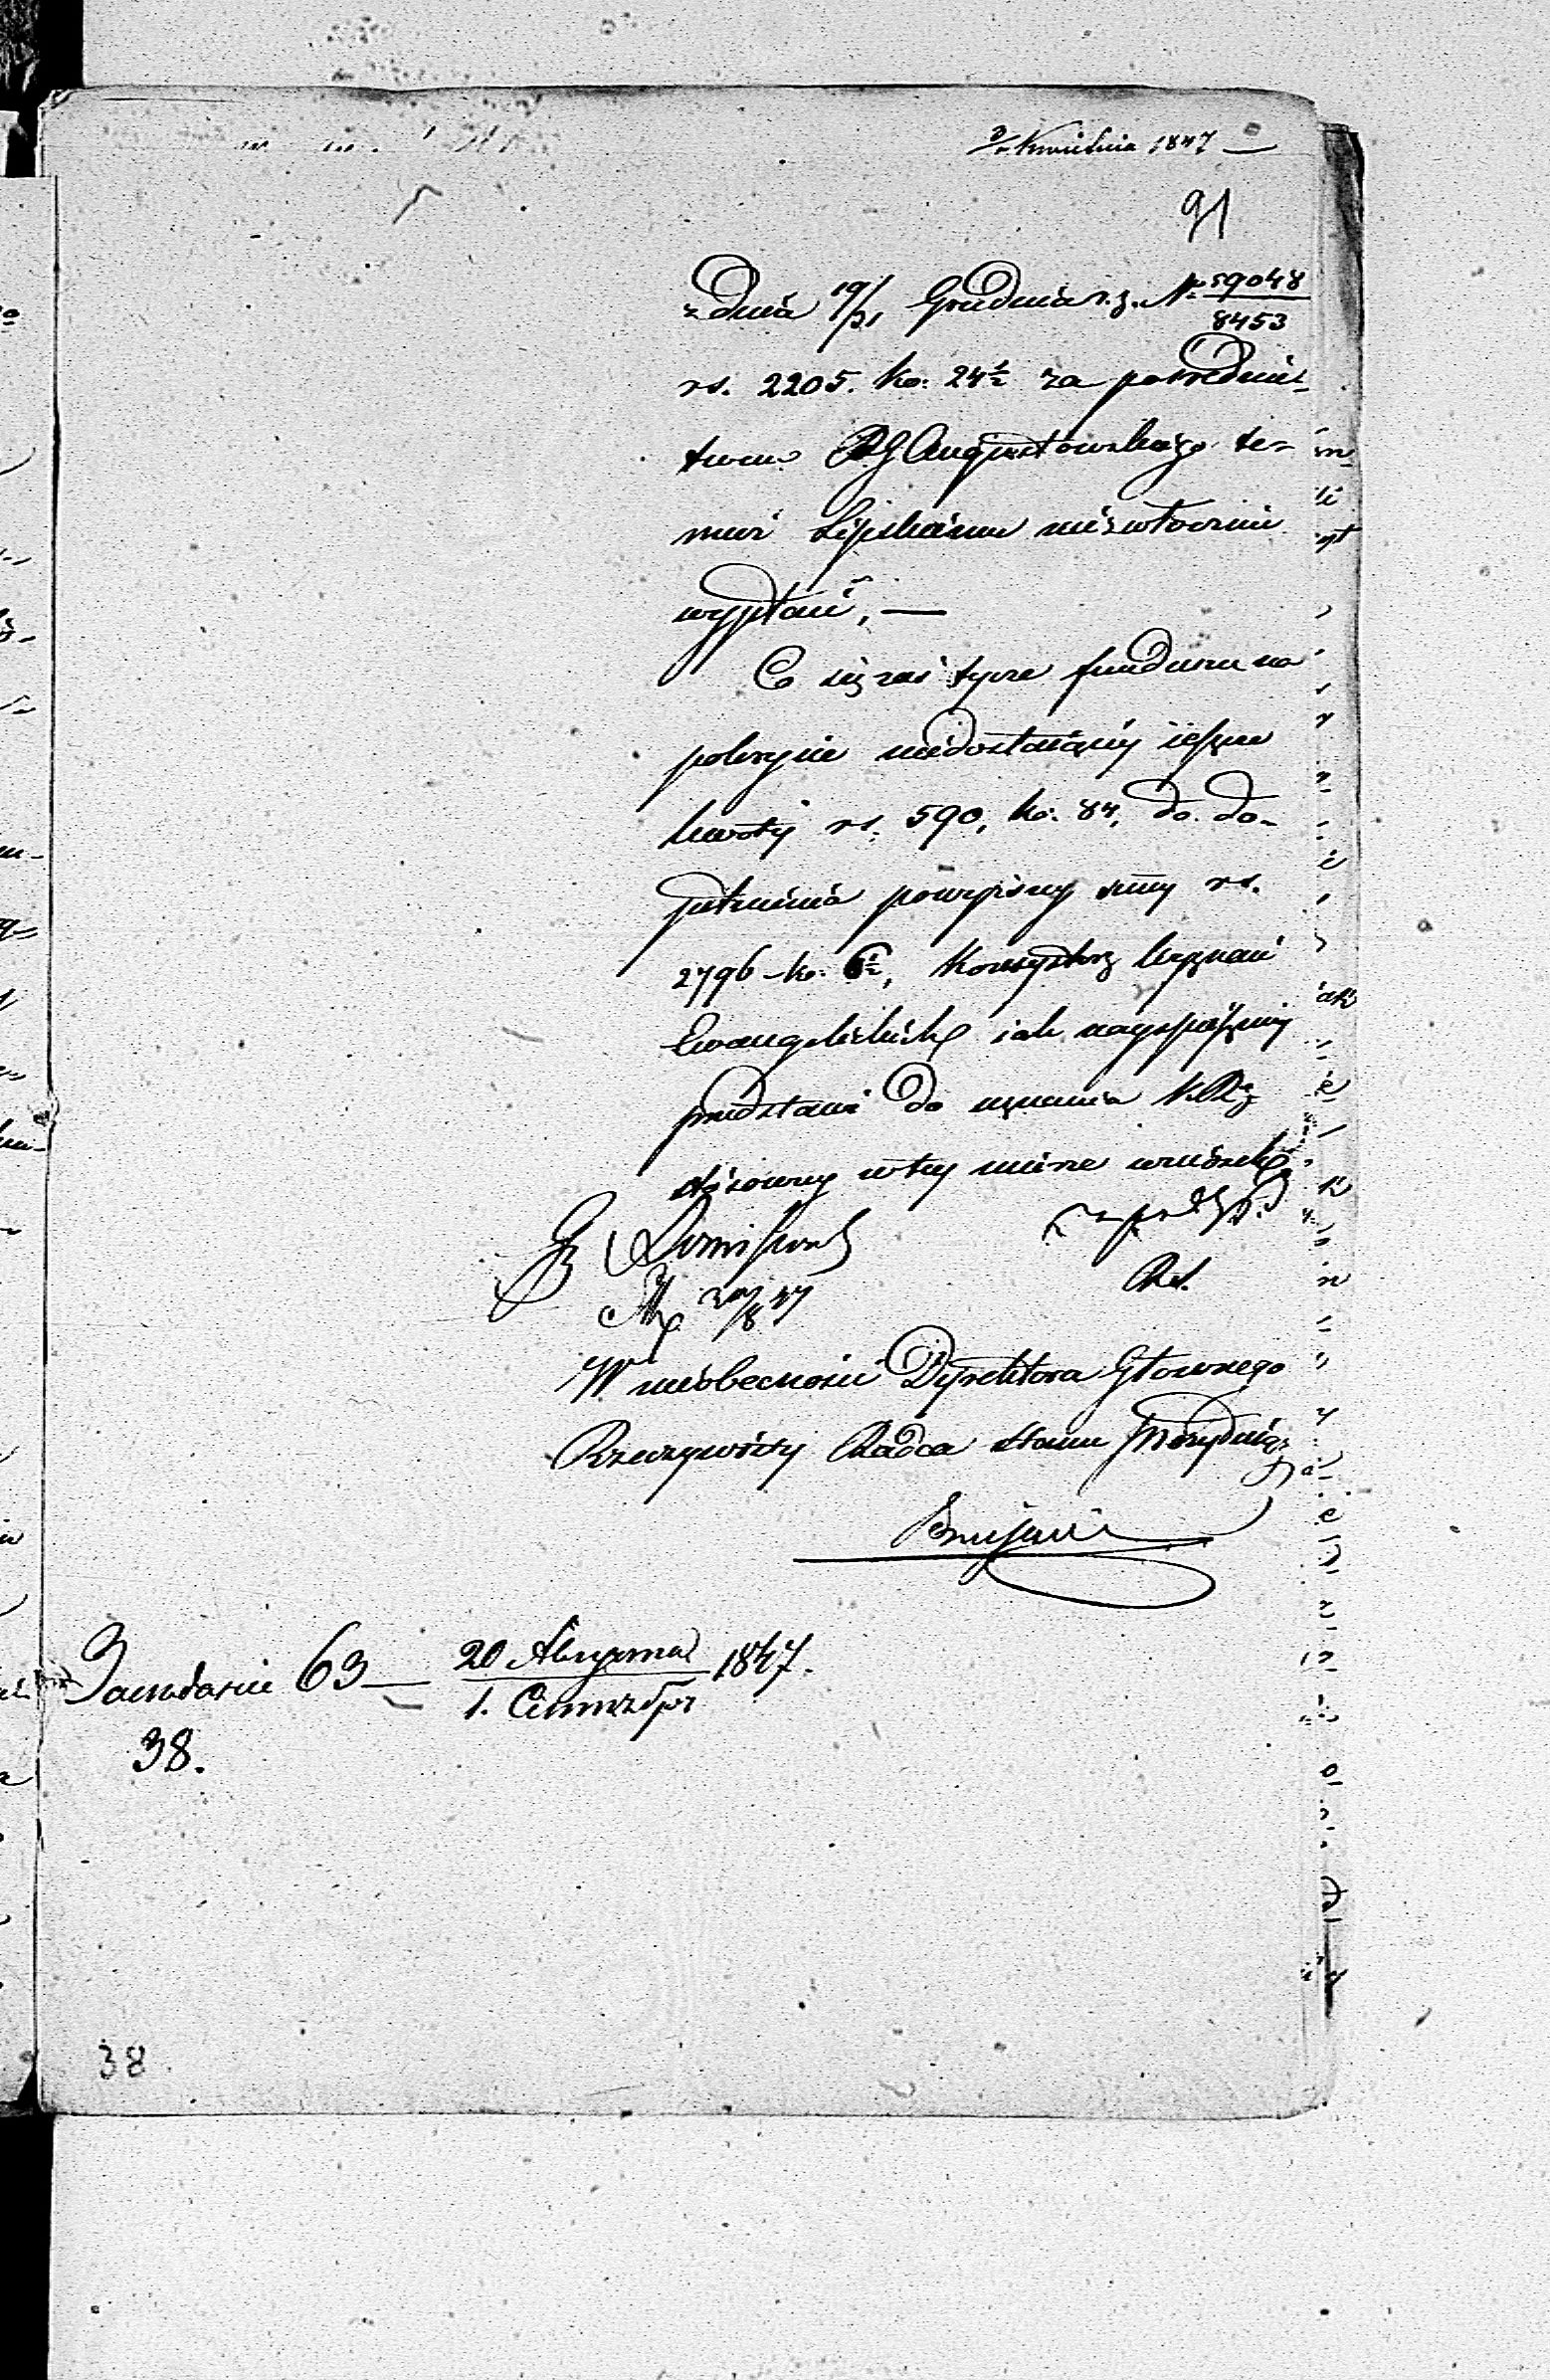 Kwietnia 1847
91
z dnia 19/31 Grudnia r. z. № 59048/8453
rs. 2205. ko: 24½ za pośrednic-
twem RG Augustowskiego te-
muż Lipskiemu niezwłocznie
wypłaci, —
Co się zaś tycze funduszu na
pokrycie niedostaiący ieszcze
kwoty rs. 590, ko: 84, do do-
pełnienia powyższy summy rs.
2796 ko: 6½, Konsystorz Wyznań
Ewangelickich iak nayspieszniy
przedstawi do uznania KRz
stósowny w tey mierze wniosek
W nieobecności Dyrektora Głownego
Rzeczywisty Radca Stanu Prezyduiący
Засѣданіе 63 — 20 Августа / 1. Сентября 1847.
38.
38